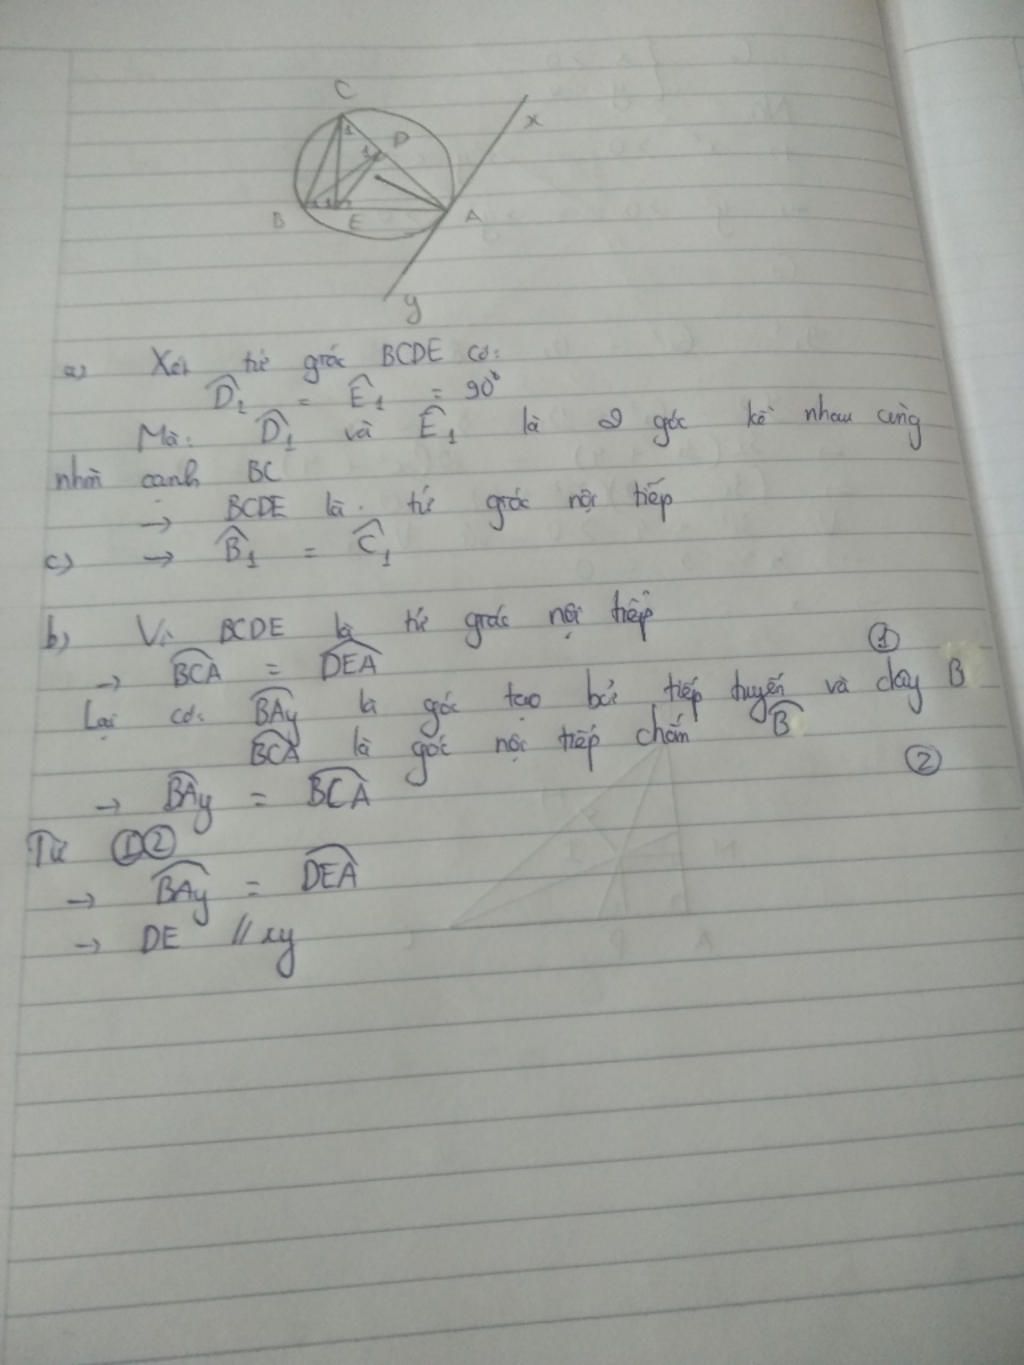 C
D
x
1
1
B
E
A
y
a) Xét tứ giác BCDE có:
D̂1 = Ê1 = 90°
Mà: D̂1 và Ê1 là 2 góc kề nhau cùng
nhìn cạnh BC
→ BCDE là tứ giác nội tiếp
c) → B̂1 = Ĉ1
b) Vì BCDE là tứ giác nội tiếp
→ BCA = DEA ①
Lại có: BAy là góc tạo bởi tiếp tuyến và dây B
BCA là góc nội tiếp chắn B
→ BAy = BCA ②
Từ ①②
→ BAy = DEA
→ DE // xy